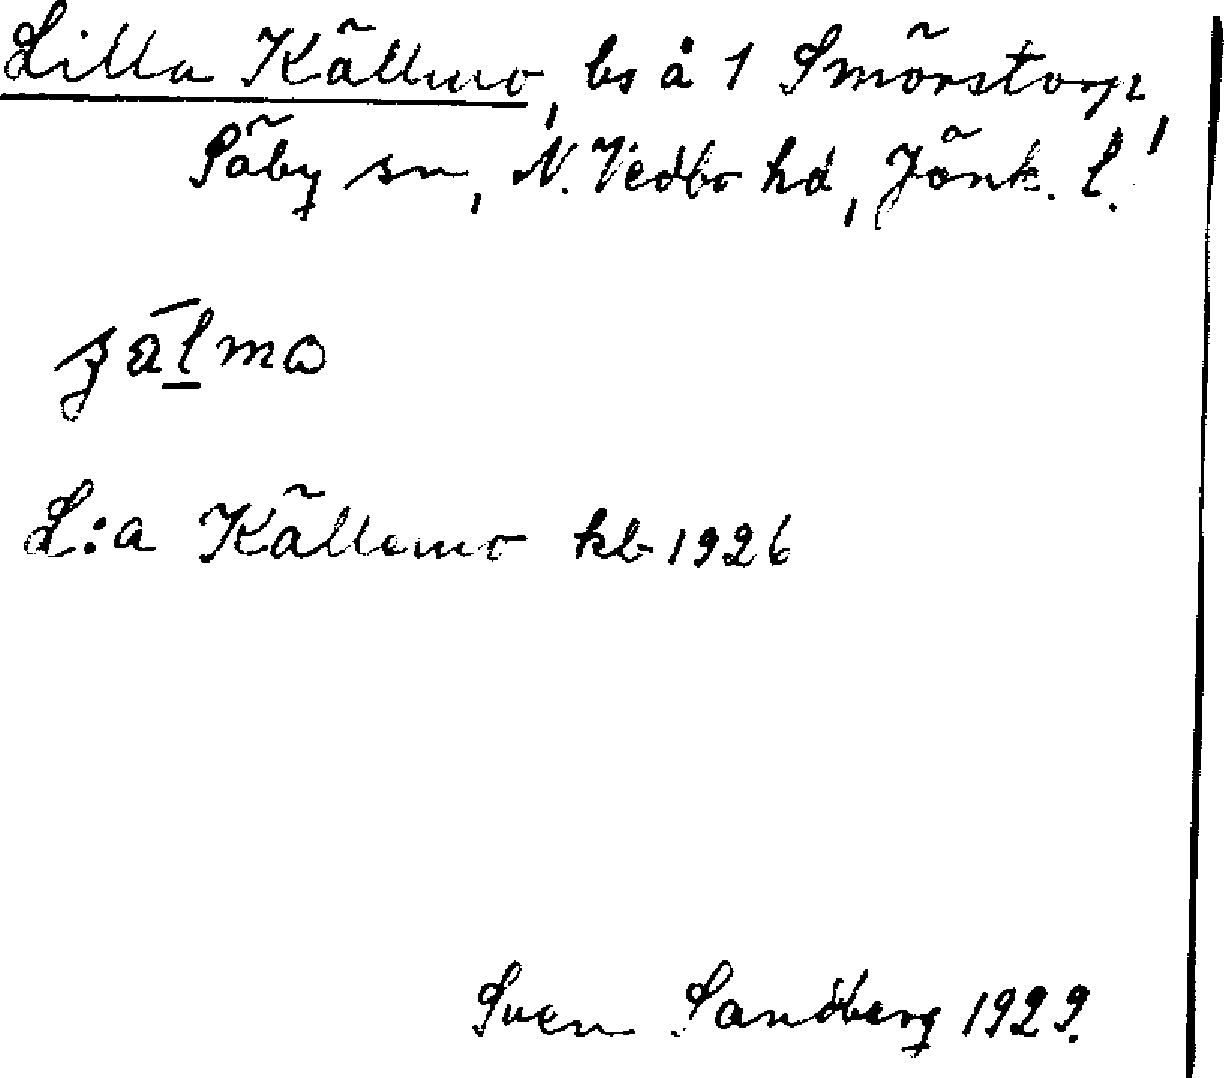 Lilla Källmo, bs å 1 Smörstorp,
Säby sn, N. Vedbo hd, Jönk. l.
L:a Källemo kb 1926
Sven Sandberg 1929.